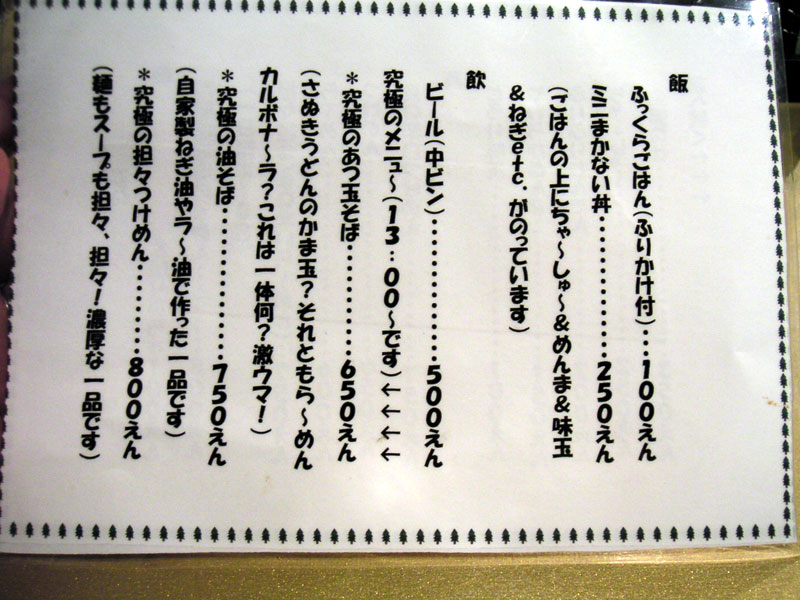 飯
ふっくらごはん(ふりかけ付)・・・100えん
ミニまかない丼・・・・・・・・・・・・・・250えん
(ごはんの上にちゃ～しゅ～&めんま&味玉
&ねぎetc.がのっています)
飲
ビール(中ビン)・・・・・・・・・・・・・・500えん
究極のメニュ～(13:00～です)←←←←
*究極のあつ玉そば・・・・・・・・・・・650えん
(さぬきうどんのかま玉?それともら～めん
カルボナ～ラ?これは一体何?激ウマ!)
*究極の油そば・・・・・・・・・・・・・・750えん
(自家製ねぎ油やラ～油で作った一品です)
*究極の担々つけめん・・・・・・・・・800えん
(麺もスープも担々、担々!濃厚な一品です)